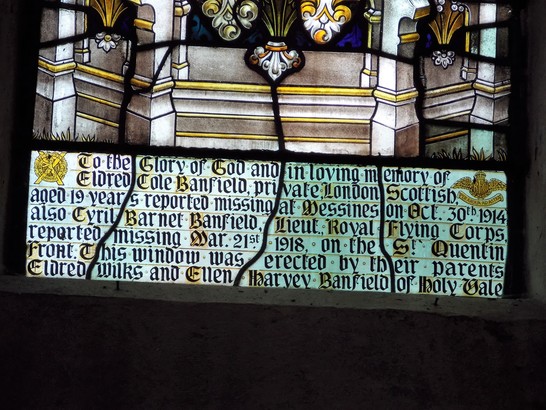 To the Glory of God and in loving memory of
Eldred Cole Banfield, private London Scottish
aged 19 years reported missing at Messines on Oct. 30th 1914
also Cyril Barnet Banfield Lieut. Royal Flying Corps
reported missing Mar. 21st 1918, on the St Quentin
Front. This window was erected by their parents
Eldred Wilks and Ellen Harvey Banfield of Holy Vale